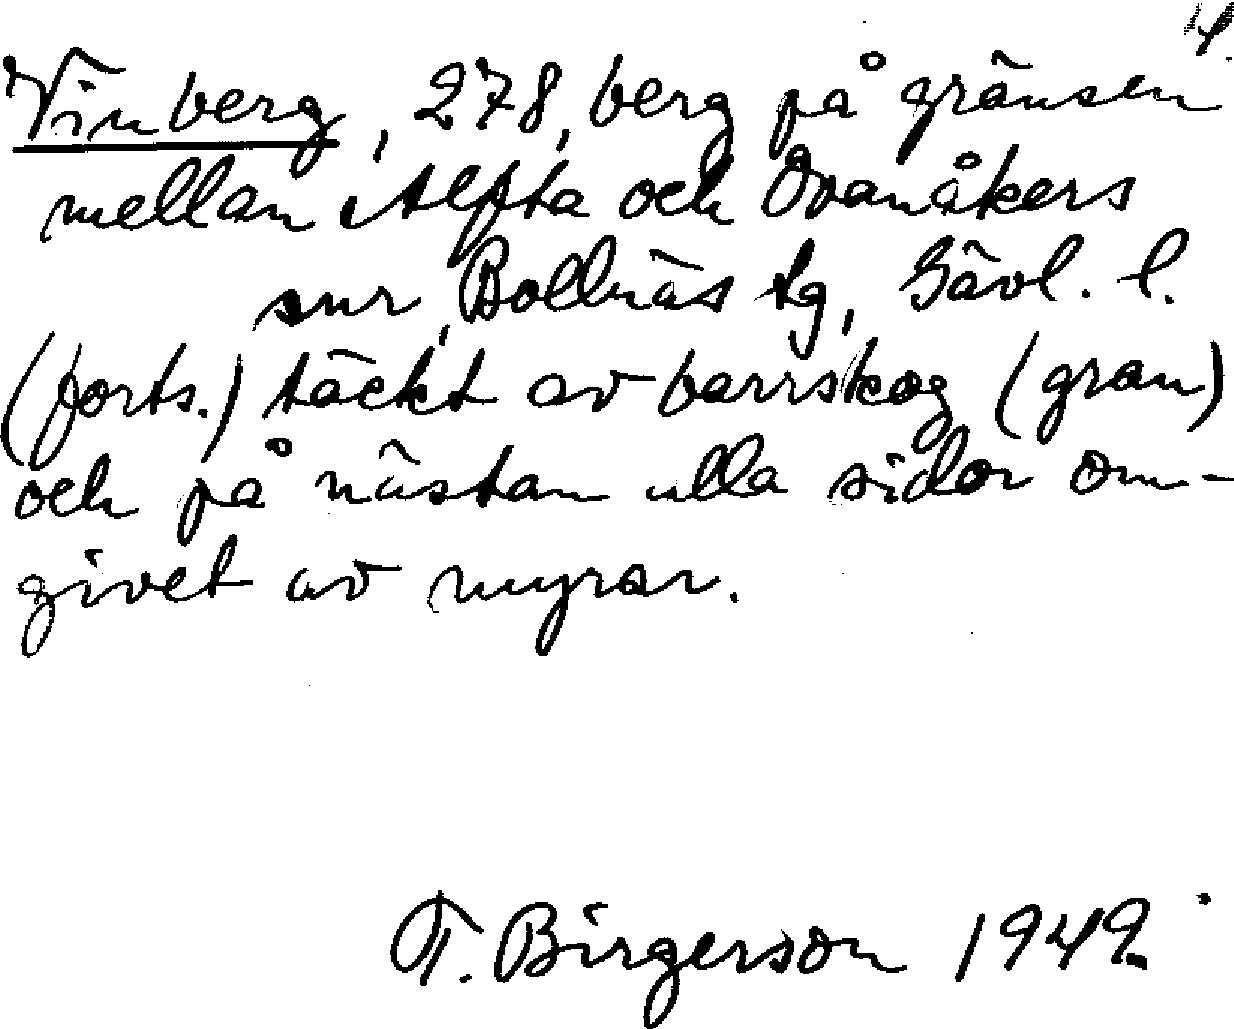 4.
Vinberg, 278, berg på gränsen
mellan Alfta och Ovanåkers
snr, Bollnäs tg, Gävl. l.
(forts.) täckt av barrskog (gran)
och på nästan alla sidor om-
givet av myrar.
T. Birgerson 1949.